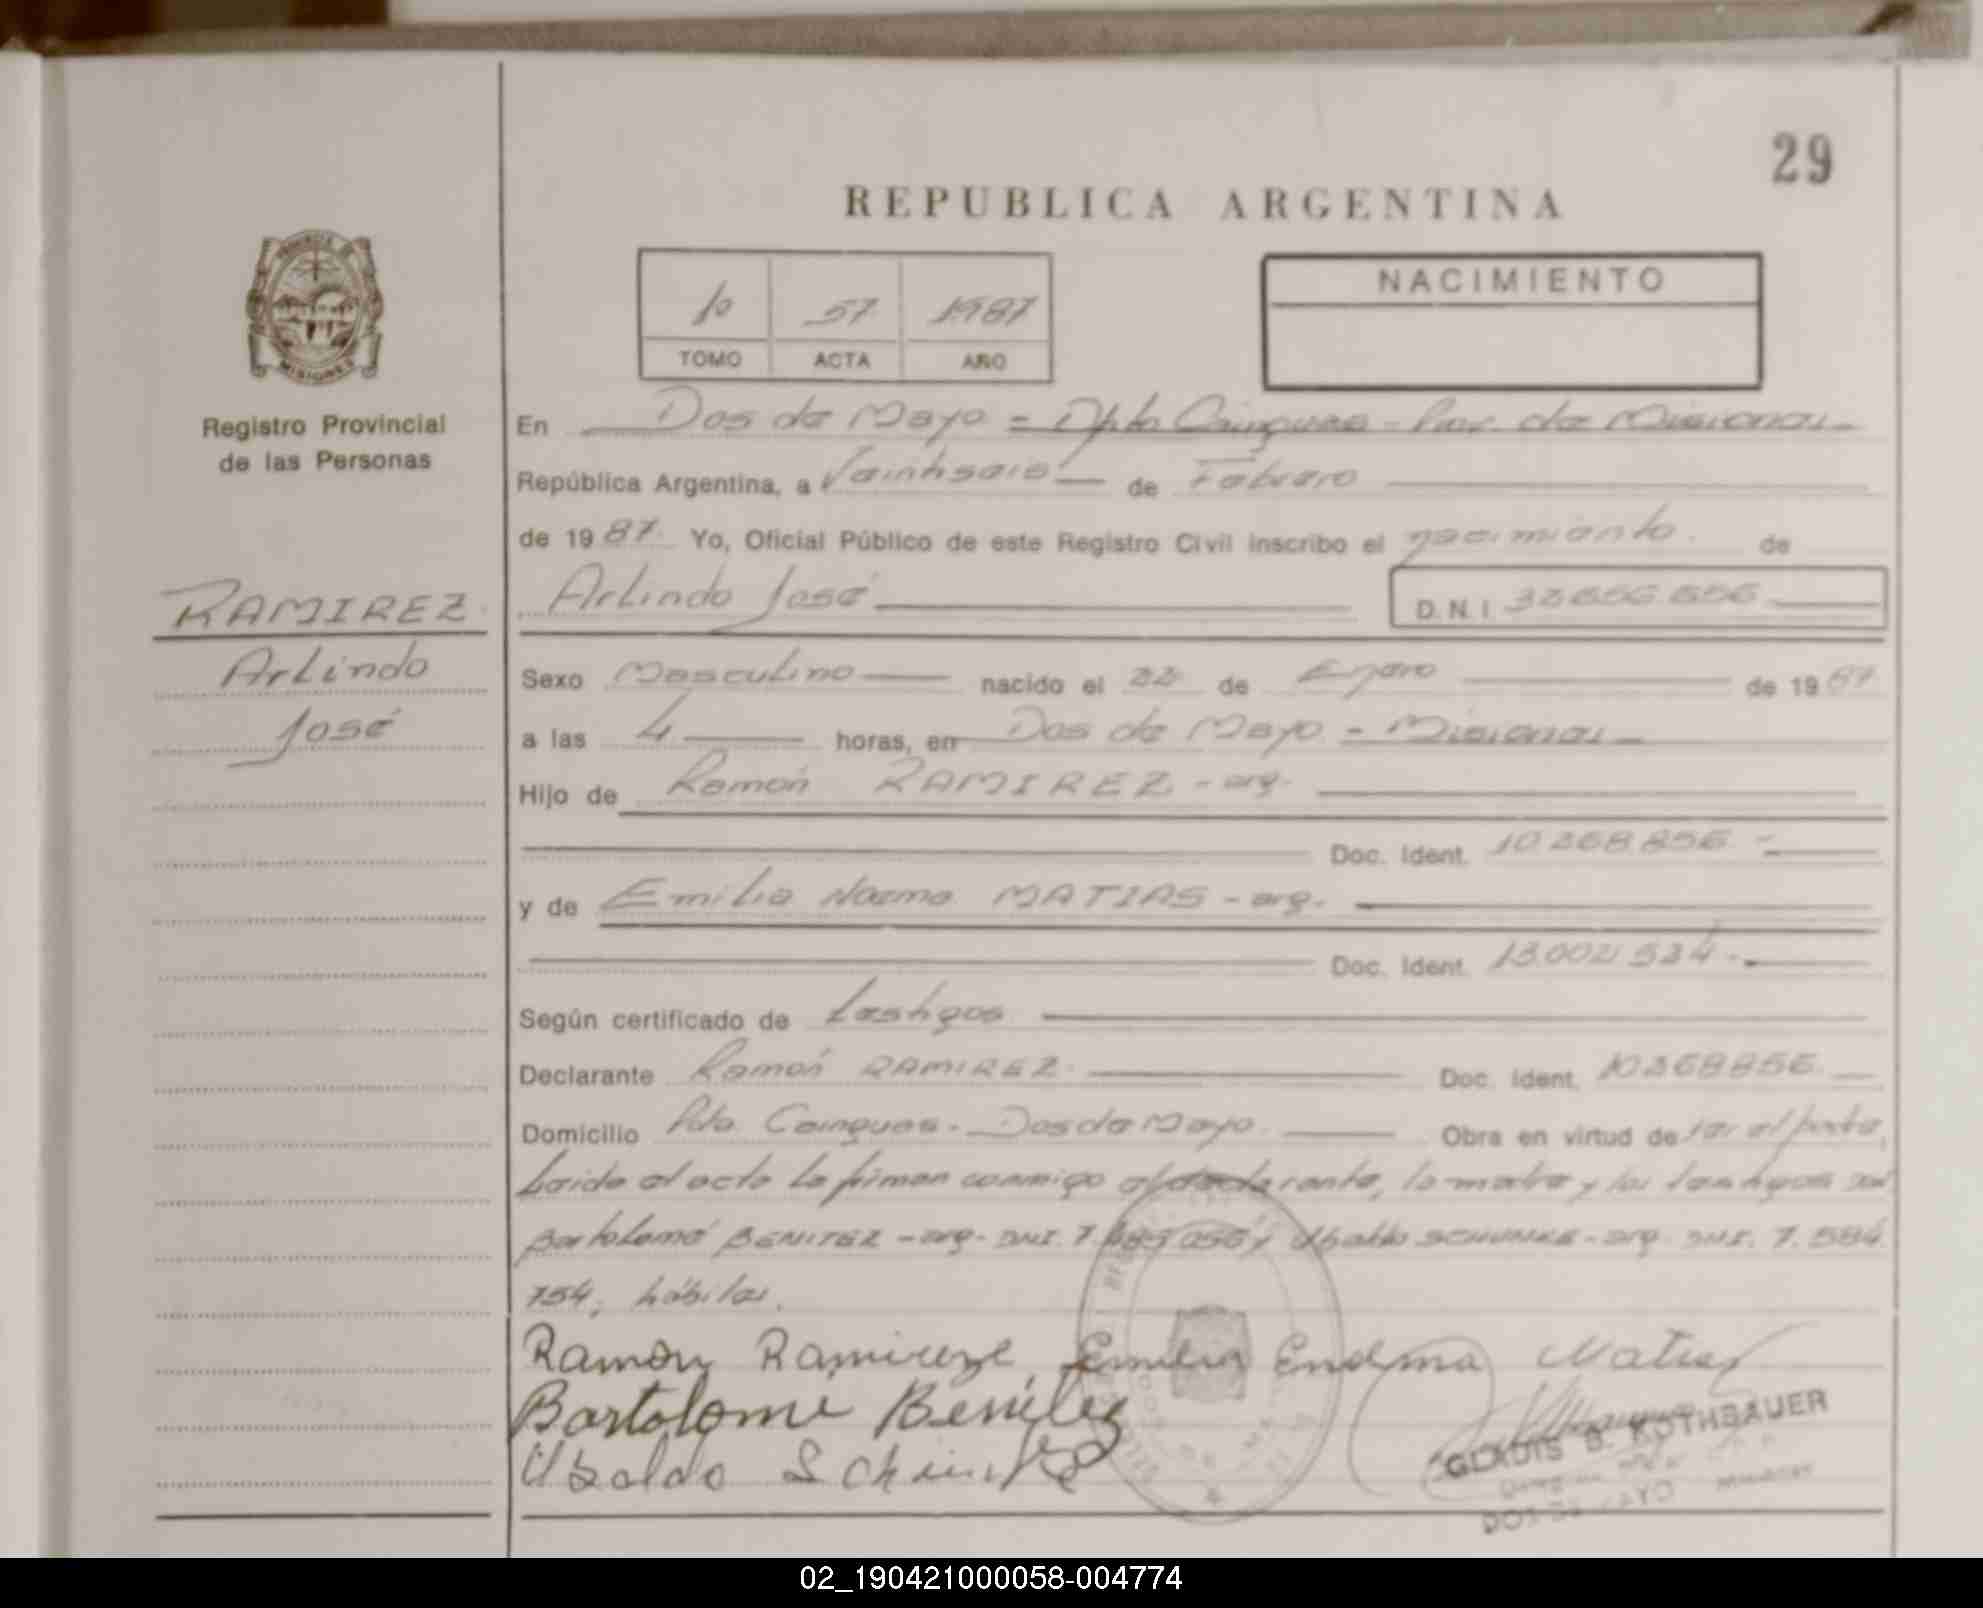 29
REPUBLICA ARGENTINA
1º 57 1987
TOMO ACTA AÑO
NACIMIENTO
MISIONES
Registro Provincial
de las Personas
RAMIREZ
Arlindo
José
En Dos de Mayo - Dpto Cainguas - Prov. de Misiones
República Argentina, a Veintiseis de Febrero
de 1987. Yo, Oficial Público de este Registro Civil inscribo el nacimiento de
Arlindo José D.N.I.
Sexo Masculino nacido el 22 de Enero de 1987
a las 4 horas, en Dos de Mayo - Misiones
Hijo de Ramón RAMIREZ - arg.
Doc. Ident. 10.368.856
y de Emilia Norma MATIAS - arg.
Doc. Ident. 13.002.534
Según certificado de testigos
Declarante Ramón RAMIREZ Doc. Ident. 10.368.856
Domicilio Pdo. Cainguas - Dos de Mayo Obra en virtud de ser el padre,
Leida el acta la firman conmigo el declarante, la madre y los testigos
Bartolomé BENITEZ - arg. DNI. 7. Ubaldo - arg. DNI. 7.584.
754, hábiles.
Ramon Ramirez Emilia Matias
Bartolome Benitez
Ubaldo
GLADIS B. ROTHBAUER
DOS DE MAYO
02_190421000058-004774